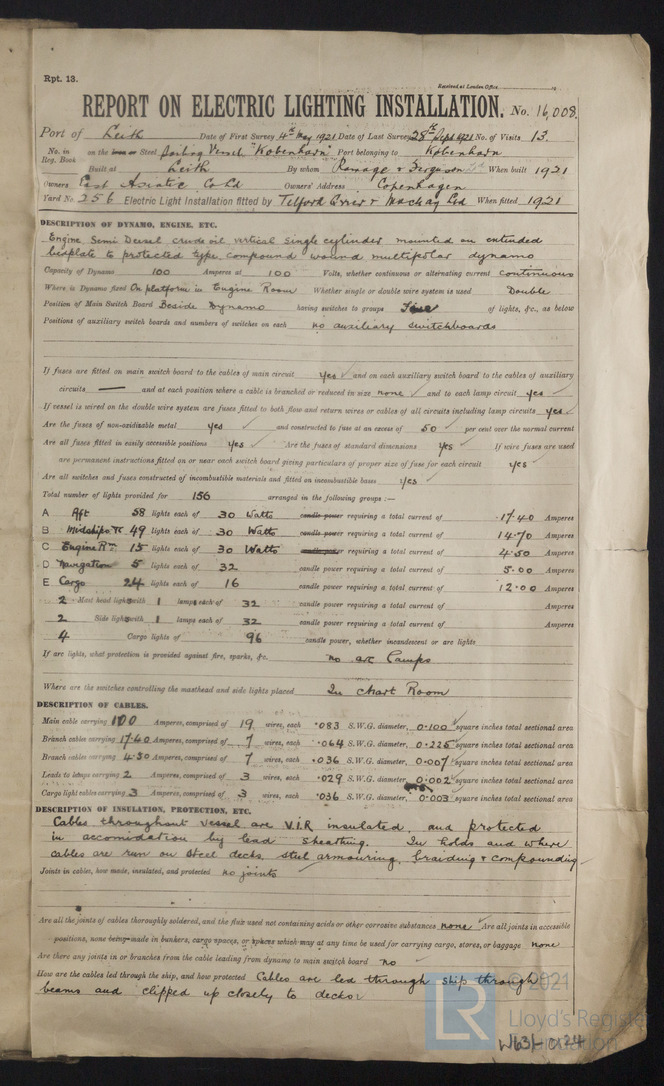 Rpt. 13.
Received at London Office 19
REPORT ON ELECTRIC LIGHTING INSTALLATION. No. 16,008.
Port of Leith Date of First Survey 4th May 1921 Date of Last Survey 28th Sept 1921 No. of Visits 13.
No. in Reg. Book on the Iron or Steel Sailing Vessel "Kobenhavn" Port belonging to Kobenhavn
Built at Leith By whom Ramage & Ferguson Ltd When built 1921
Owners East Asiatic Co Ld Owners' Address Copenhagen
Yard No. 256 Electric Light Installation fitted by Telford Grier & Mackay Ltd When fitted 1921
DESCRIPTION OF DYNAMO, ENGINE, ETC.
Engine Semi Deisel crude oil vertical single cylinder mounted on extended
bedplate to protected type compound wound multipolar dynamo
Capacity of Dynamo 100 Amperes at 100 Volts, whether continuous or alternating current continuous
Where is Dynamo fixed On platform in Engine Room Whether single or double wire system is used Double
Position of Main Switch Board Beside Dynamo having switches to groups Five of lights, &c., as below
Positions of auxiliary switch boards and numbers of switches on each no auxiliary switchboards
If fuses are fitted on main switch board to the cables of main circuit yes and on each auxiliary switch board to the cables of auxiliary
circuits — and at each position where a cable is branched or reduced in size none and to each lamp circuit yes
If vessel is wired on the double wire system are fuses fitted to both flow and return wires or cables of all circuits including lamp circuits yes
Are the fuses of non-oxidizable metal yes and constructed to fuse at an excess of 50 per cent over the normal current
Are all fuses fitted in easily accessible positions yes Are the fuses of standard dimensions yes If wire fuses are used
are permanent instructions fitted on or near each switch board giving particulars of proper size of fuse for each circuit yes
Are all switches and fuses constructed of incombustible materials and fitted on incombustible bases yes
Total number of lights provided for 156 arranged in the following groups :—
A Aft 58 lights each of 30 Watts candle power requiring a total current of 17.40 Amperes
B Midships 49 lights each of 30 Watts candle power requiring a total current of 14.70 Amperes
C Engine Rm 15 lights each of 30 Watts candle power requiring a total current of 4.50 Amperes
D Navigation 5 lights each of 32 candle power requiring a total current of 5.00 Amperes
E Cargo 24 lights each of 16 candle power requiring a total current of 12.00 Amperes
2 Mast head light with 1 lamps each of 32 candle power requiring a total current of Amperes
2 Side light with 1 lamps each of 32 candle power requiring a total current of Amperes
4 Cargo lights of 96 candle power, whether incandescent or arc lights
If arc lights, what protection is provided against fire, sparks, &c. no arc lamps
Where are the switches controlling the masthead and side lights placed In chart Room
DESCRIPTION OF CABLES.
Main cable carrying 100 Amperes, comprised of 19 wires, each .083 S.W.G. diameter, 0.100 square inches total sectional area
Branch cables carrying 17.40 Amperes, comprised of 7 wires, each .064 S.W.G. diameter, 0.225 square inches total sectional area
Branch cables carrying 4.50 Amperes, comprised of 7 wires, each .036 S.W.G. diameter, 0.007 square inches total sectional area
Leads to lamps carrying 2 Amperes, comprised of 3 wires, each .029 S.W.G. diameter, 0.002 square inches total sectional area
Cargo light cables carrying 3 Amperes, comprised of 3 wires, each .036 S.W.G. diameter, 0.003 square inches total sectional area
DESCRIPTION OF INSULATION, PROTECTION, ETC.
Cables throughout vessel are V.I.R insulated, and protected
in accomidation by lead sheathing. In holds and where
cables are run on steel decks, steel armouring, braiding & compounding
Joints in cables, how made, insulated, and protected no joints
Are all the joints of cables thoroughly soldered, and the flux used not containing acids or other corrosive substances none Are all joints in accessible
positions, none being made in bunkers, cargo spaces, or spaces which may at any time be used for carrying cargo, stores, or baggage none
Are there any joints in or branches from the cable leading from dynamo to main switch board no
How are the cables led through the ship, and how protected Cables are led through ship through
beams and clipped up closely to decks
© 2021
LR Lloyd's Register
Foundation
W631-0124